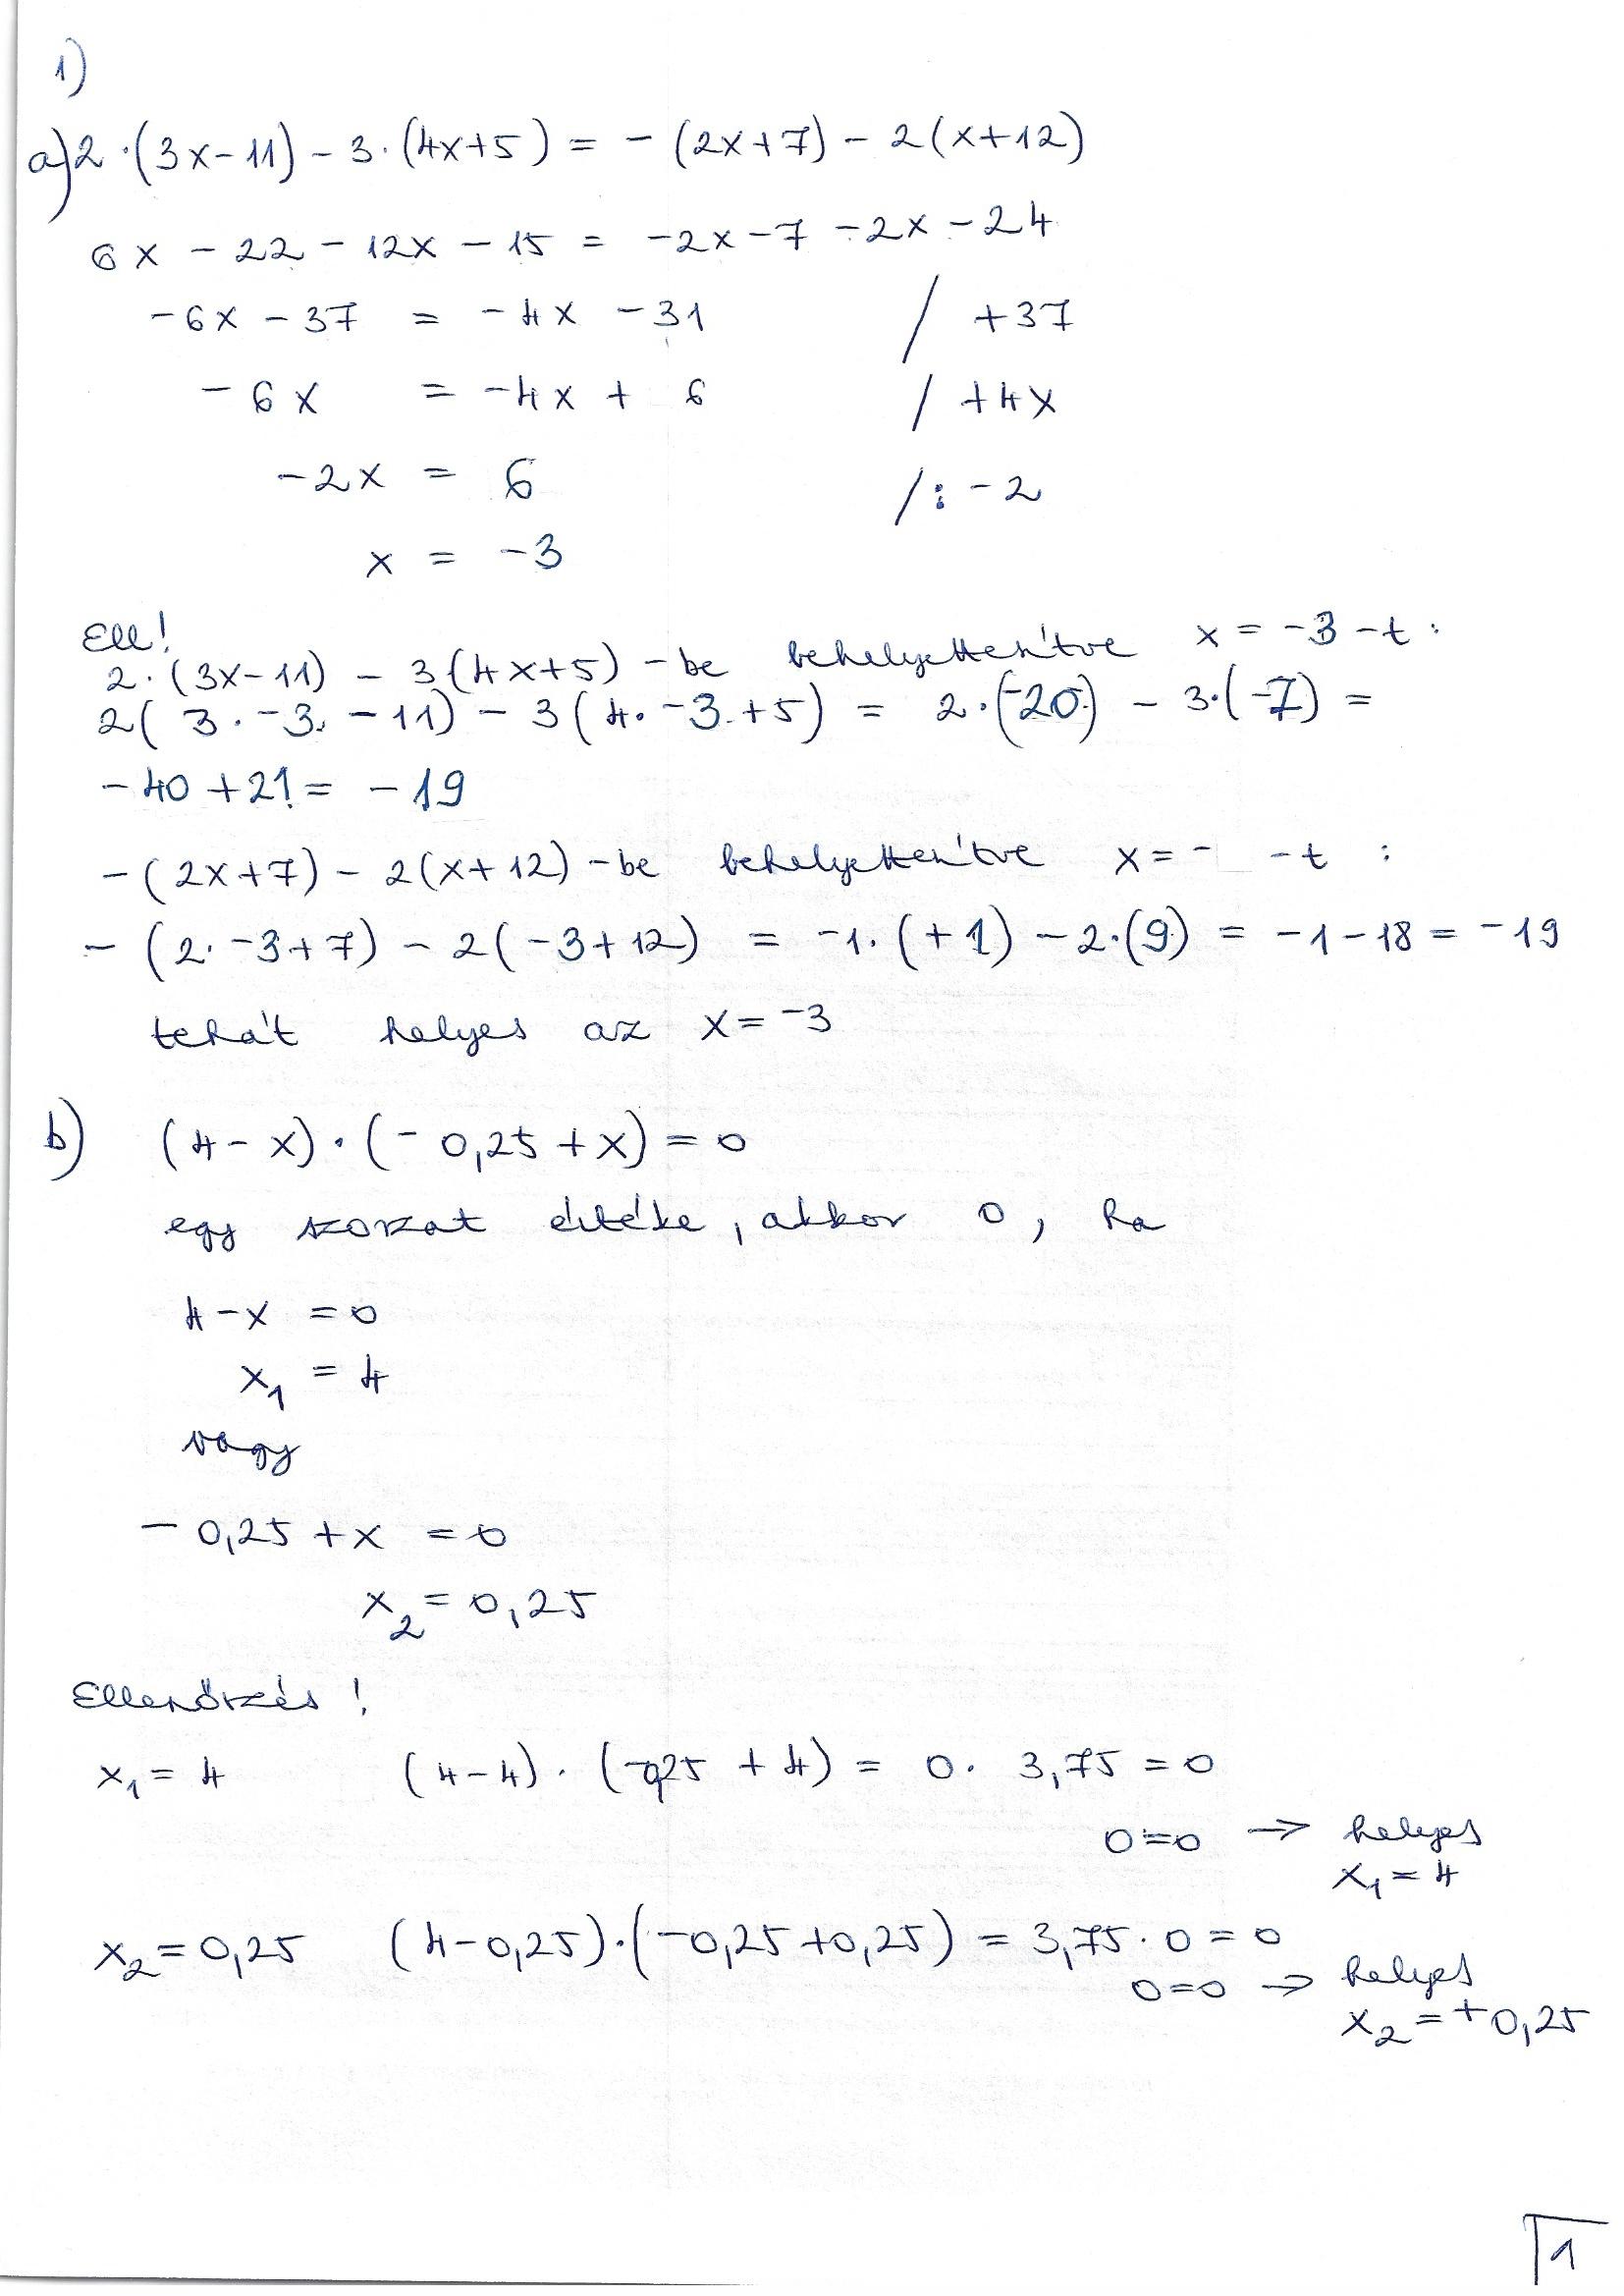 1)
a) 2·(3x-11) - 3·(4x+5) = - (2x+7) - 2(x+12)
6x - 22 - 12x - 15 = -2x - 7 - 2x - 24
-6x - 37 = -4x - 31 / +37
-6x = -4x + 6 / +4x
-2x = 6 /: -2
x = -3
Ell!
2·(3x-11) - 3(4x+5) -be behelyettesítve x = -3 -t :
2( 3·-3 -11) - 3(4·-3+5) = 2·(-20) - 3·(-7) =
-40 +21 = -19
-(2x+7) - 2(x+12) -be behelyettesítve x = - -t :
- (2·-3+7) - 2(-3+12) = -1·(+1) - 2·(9) = -1-18 = -19
tehát helyes az x = -3
b) (4-x)·(-0,25+x) = 0
egy szorzat értéke, akkor 0, ha
4-x = 0
x₁ = 4
vagy
-0,25+x = 0
x₂ = 0,25
Ellenőrzés!
x₁ = 4 (4-4)·(-0,25 + 4) = 0· 3,75 = 0
0=0 → helyes
x₁ = 4
x₂ = 0,25 (4-0,25)·(-0,25+0,25) = 3,75·0 = 0
0=0 → helyes
x₂ = +0,25
1